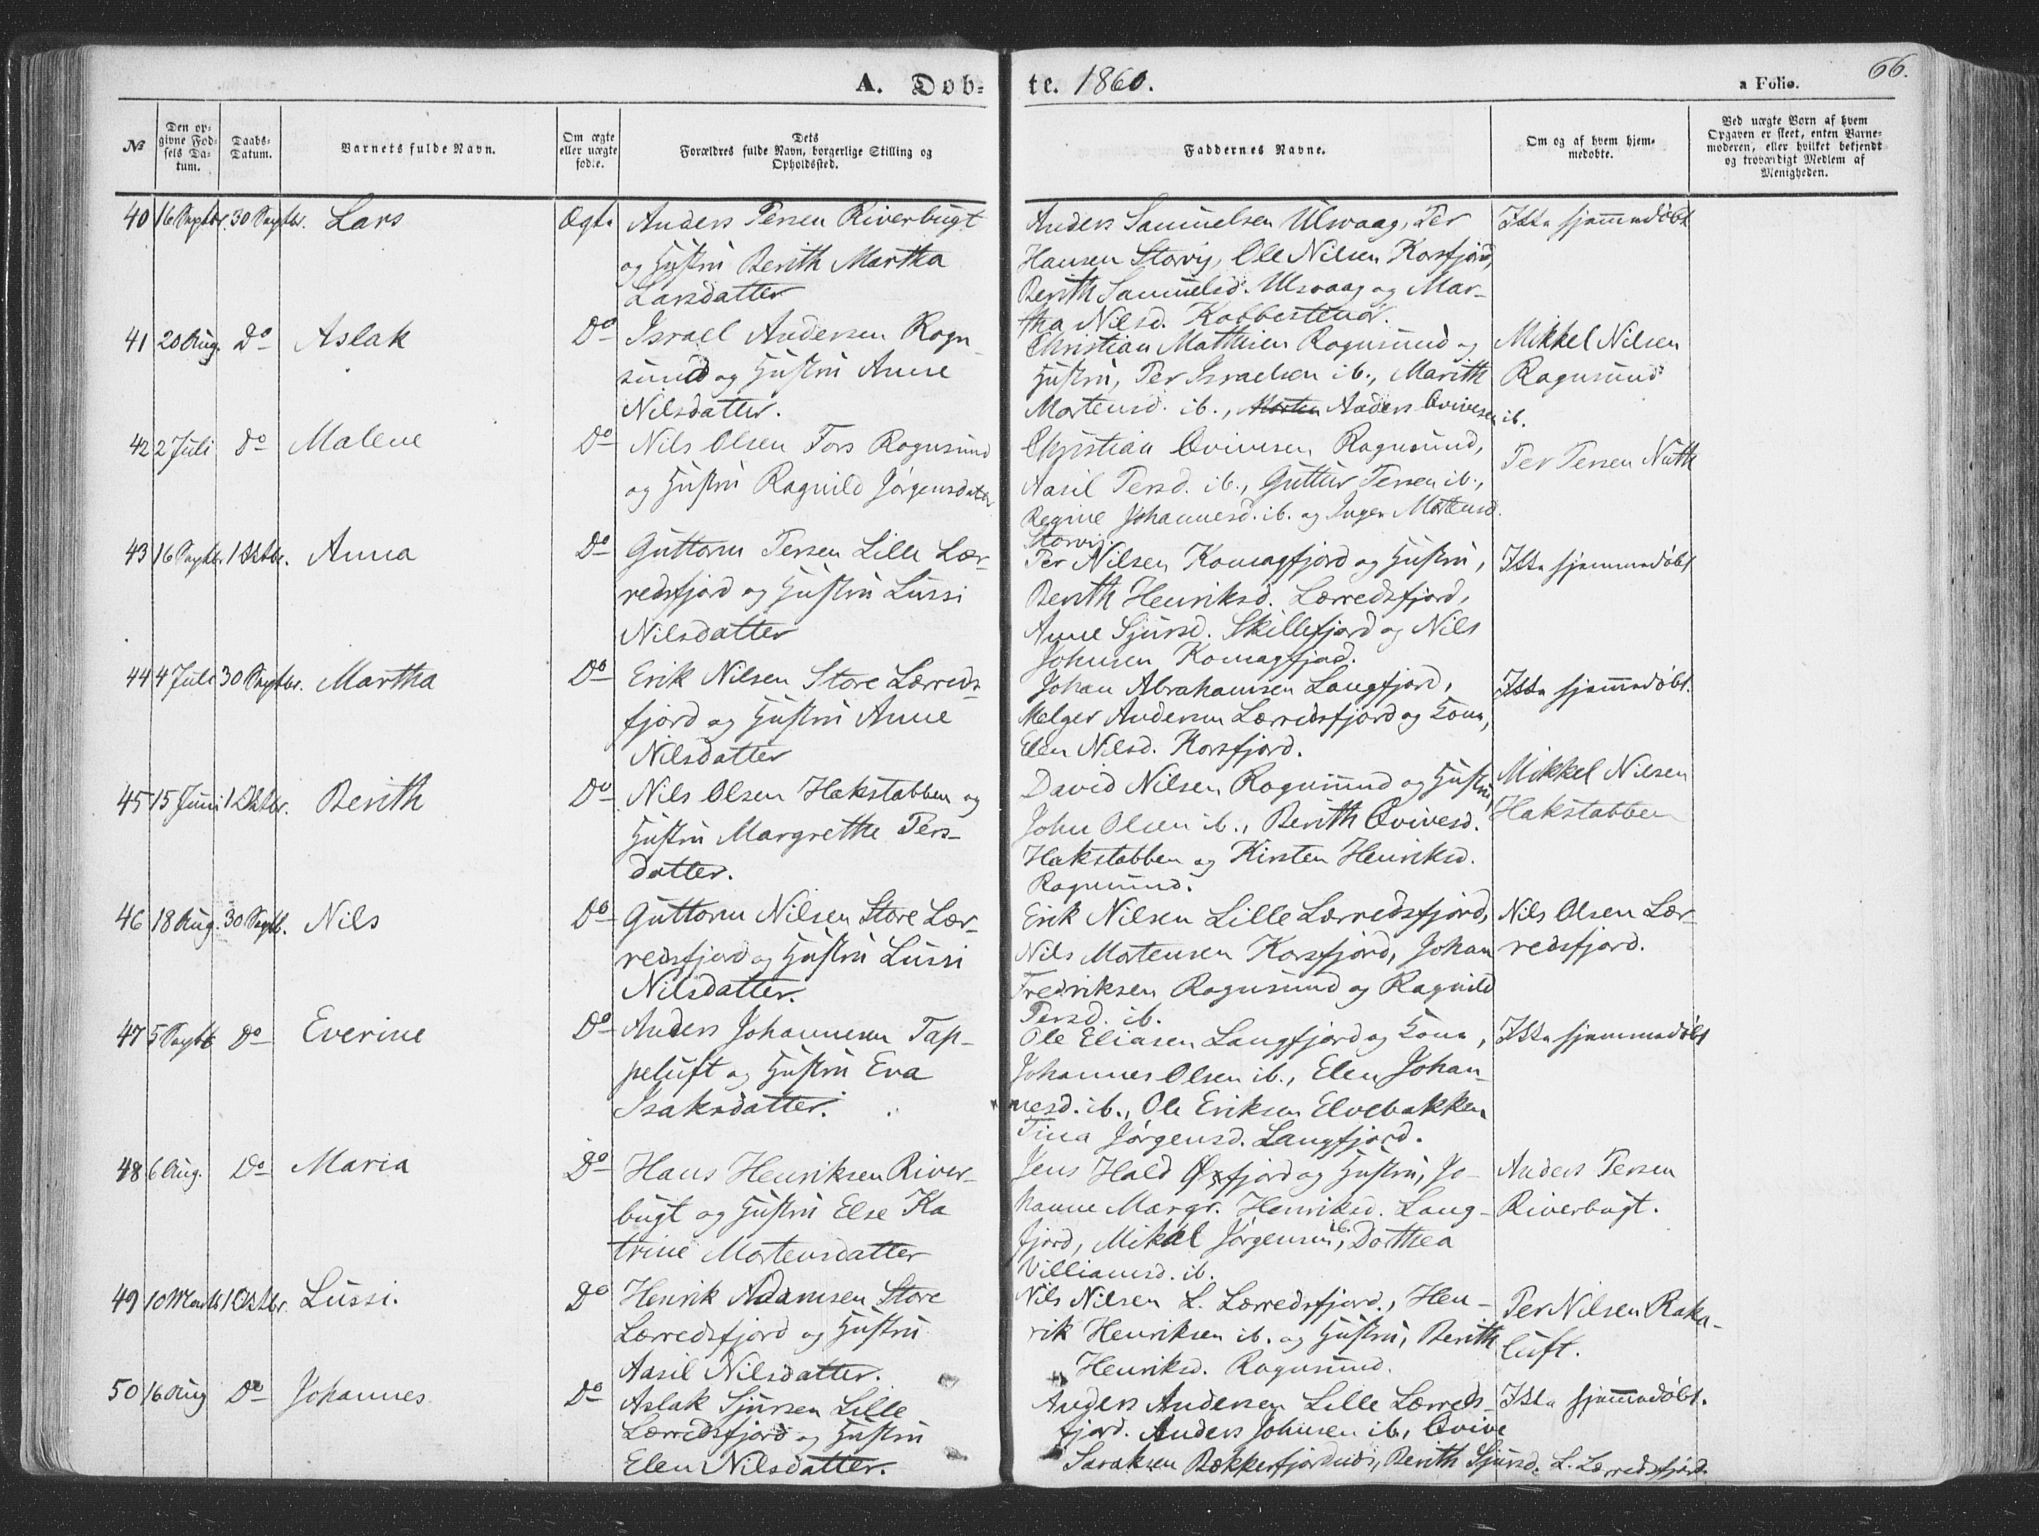 A. Døb-
te. 1860.
a Folio.
66.
№
Den op-
givne Fod-
sels Da-
tum.
Daabs-
Datum.
Barnets fulde Navn.
Om ægte
eller uægte
fød:e.
Dets
Forældres fulde Navn, borgerlige Stilling og
Opholdssted.
Faddernes Navne.
Om og af hvem hjem-
medøbte.
Ved uægte Born af hvem
Opgaven er skeet, enten Barne-
moderen, eller hvilket bekjendt
og troværdigt Medlem af
Menigheden.
40 16 Septbr. 30 Septbr. Lars Ægte
Anders Persen Riverbugt
og Hustru Berith Martha
Larsdatter
Anders Samuelsen Ulsvaag, Per
Hansen Storvig, Ole Nilsen Korsfjord,
Berith Samuelsd. Ulsvaag og Mar-
tha Nilsd. Kobbestenor.
Ikke hjemmedøbt
41 20 Aug. Do Aslak Do
Israel Andersen Rogn-
sund og Hustru Anne
Nilsdatter.
Christian Mathisen Rognsund og
Hustru, Per Israelsen ib., Marith
Mortensd. ib., Morten Anders Qvivesen ib.
Mikkel Nilsen
Rognsund
42 2 Juli do Malene Do
Nils Olsen Fors Rognsund
og Hustru Ragnild Jørgensdatter
Christian Qvivesen Rognsund,
Aasil Persd. ib., Guttur Persen ib.,
Regine Johannesd. ib. og Inger Mortensd.
Storvig.
Per Persen Nuth
43 16 Septbr. 1 Oktbr. Anna Do
Guttorm Persen Lille Lær-
redsfjord og Hustru Lussi
Nilsdatter
Per Nilsen Komagfjord og Hustru,
Berith Henriksd. Lærredsfjord,
Anne Sjursd. Skillefjord og Nils
Johnsen Komagfjord.
Ikke hjemmedøbt
44 4 Juli 30 Septbr. Martha Do
Erik Nilsen Store Lærreds-
fjord og Hustru Anne
Nilsdatter
Johan Abrahamsen Langfjord,
Melger Andersen Lærredsfjord og Kone,
Elen Nilsd. Korsfjord.
Ikke hjemmedøbt.
45 15 Juni 1 Oktbr. Berith Do
Nils Olsen Hakstabben og
Hustru Margrethe Pers-
datter.
David Nilsen Rognsund og Hustru,
John Olsen ib., Berith Qvivesd.
Hakstabben og Kirsten Henriksd.
Rognsund.
Mikkel Nilsen
Hakstabben
46 18 Aug. 30 Septb. Nils Do
Guttorm Nilsen Store Lær-
redsfjord og Hustru Lussi
Nilsdatter.
Erik Nilsen Lille Lærredsfjord,
Nils Mortensen Korsfjord, Johan
Fredriksen Rognsund og Ragnild
Persd. ib.
Nils Olsen Lær-
redsfjord.
47 5 Septb Do Everine Do
Anders Johannesen Tap-
peluft og Hustru Eva
Isaksdatter.
Ole Eliasen Langfjord og Kone,
Johannes Olsen ib., Elen Johan-
nesd. ib., Ole Eriksen Elvebakken
Tina Jørgensd. Langfjord.
Ikke hjemmedøbt
48 6 Aug. Do Maria Do
Hans Henriksen River-
bugt og Hustru Else Ka
trine Mortensdatter
Jens Hald Øxfjord og Hustru, Jo-
hanne Margr. Henriksd. Lang-
fjord, Mikal Jørgensen ib., Dorthea
Williamsd. ib.
Anders Persen
Riverbugt.
49 10 Marts 1 Oktbr. Lussi. Do
Henrik Adamsen Store
Lærredsfjord og Hustru
Aasil Nilsdatter.
Nils Nilsen L. Lærredsfjord, Hen-
rik Henriksen ib. og Hustru, Berith
Henriksd. Rognsund.
Per Nilsen Rake-
luft.
50 16 Aug Do Johannes. Do
Aslak Sjursen Lille
Lærredsfjord og Hustru
Elen Nilsdatter.
Anders Andersen Lille Lærreds-
fjord. Anders Johnsen ib., Qvive
Saraksen Bekkerfjordnæs, Berith Sjursd. L. Lærredsfjord.
Ikke hjemmedøbt.